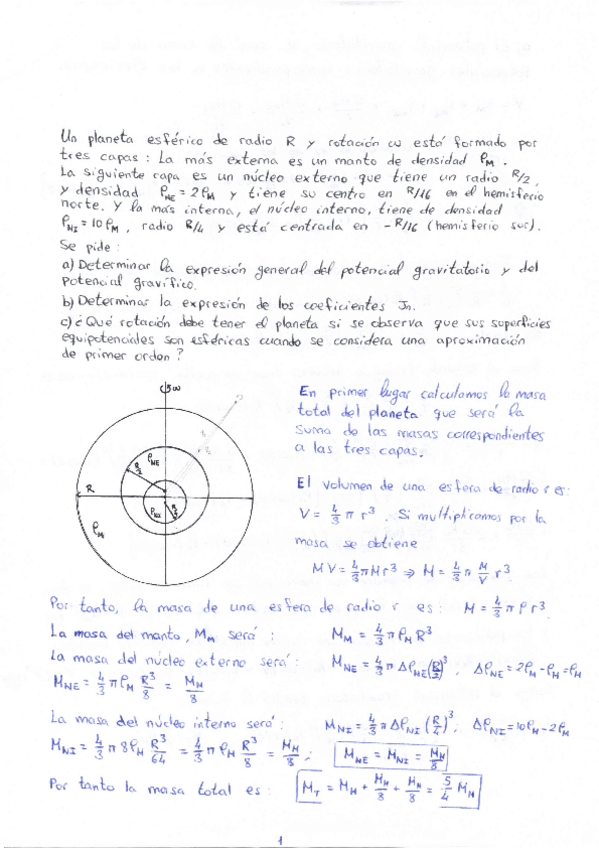 Un planeta esférico de radio R y rotación ω está formado por
tres capas: La más externa es un manto de densidad ρM.
La siguiente capa es un núcleo externo que tiene un radio R/2,
y densidad ρNE = 2ρM y tiene su centro en R/16 en el hemisferio
norte. Y la más interna, el núcleo interno, tiene de densidad
ρNI = 10ρM, radio R/4 y está centrada en -R/16 (hemisferio sur).
Se pide:
a) Determinar la expresión general del potencial gravitatorio y del
potencial gravífico.
b) Determinar la expresión de los coeficientes Jn.
c) ¿Qué rotación debe tener el planeta si se observa que sus superficies
equipotenciales son esféricas cuando se considera una aproximación
de primer orden?
ω
ρNE
R/2
R
ρNI
R/4
ρM
En primer lugar calculamos la masa
total del planeta que será la
suma de las masas correspondientes
a las tres capas.
El volumen de una esfera de radio r es:
V = 4/3 π r³. Si multiplicamos por la
masa se obtiene
MV = 4/3 π M r³ ⇒ M = 4/3 π M/V r³
Por tanto, la masa de una esfera de radio r es: M = 4/3 π ρ r³
La masa del manto, MM será: MM = 4/3 π ρM R³
La masa del núcleo externo será: MNE = 4/3 π ΔρNE (R/2)³, ΔρNE = 2ρM - ρM = ρM
MNE = 4/3 π ρM R³/8 = MM/8
La masa del núcleo interno será: MNI = 4/3 π ΔρNI (R/4)³, ΔρNI = 10ρM - 2ρM
MNI = 4/3 π 8ρM R³/64 = 4/3 π ρM R³/8 = MM/8; MNE = MNI = MM/8
Por tanto la masa total es: MT = MM + MM/8 + MM/8 = 5/4 MM
1